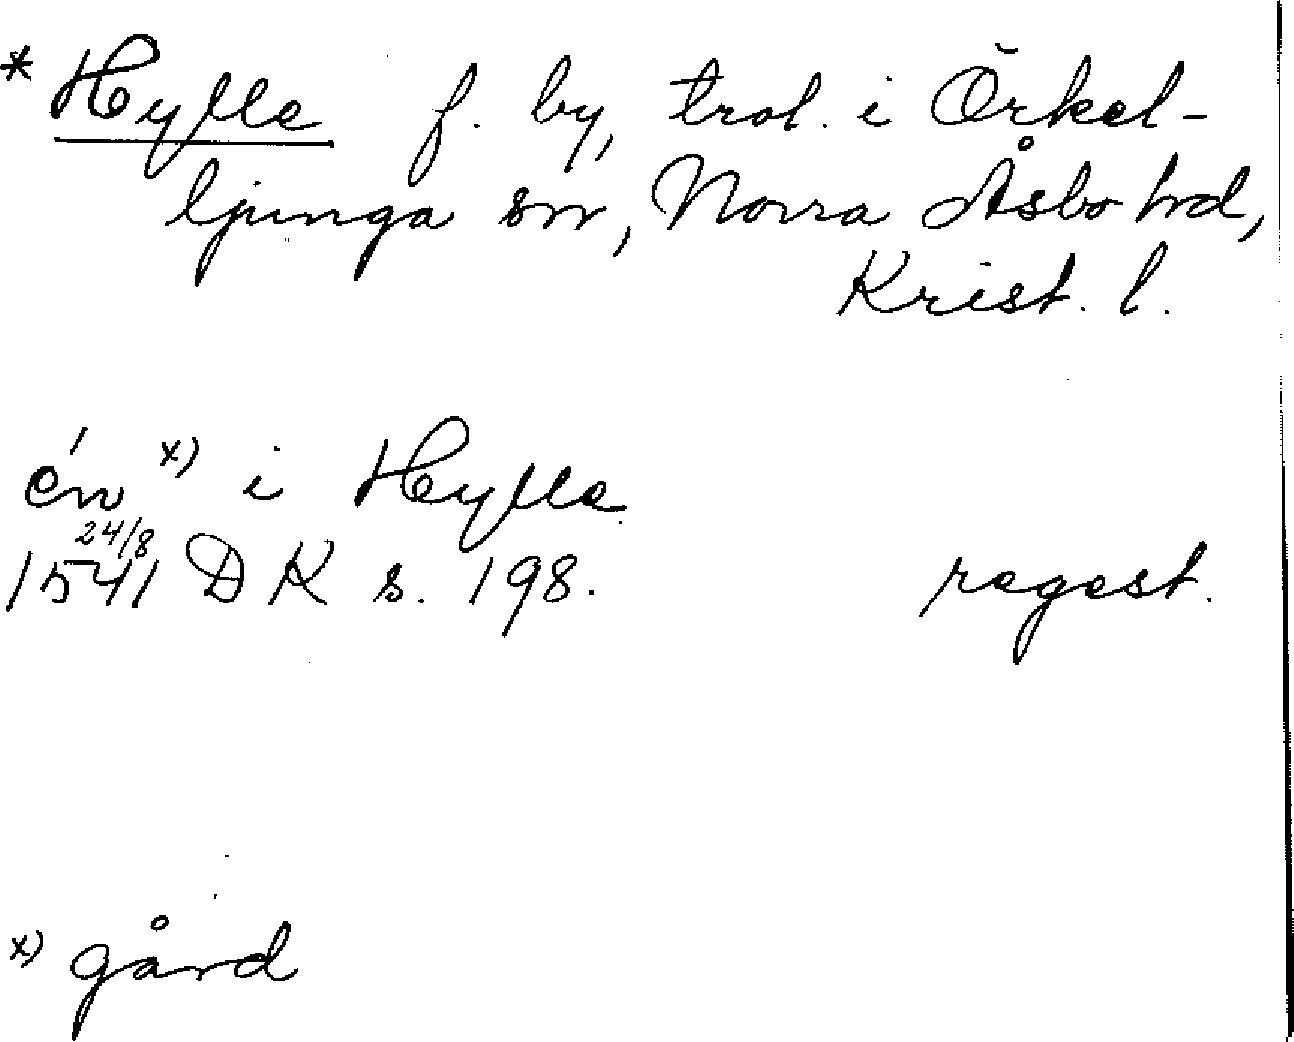 * Hylle f. by, trol. i Örkel-
ljunga sn, Norra Åsbo hd,
Krist. l.
én x) i Hylle
24/8
1541 DK s. 198. regest.
x) gård